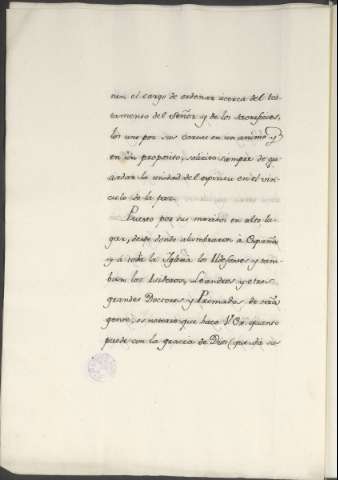 nen el cargo de ordenar acerca del tes-
tamento del Señor y de los sacrificios,
los une por sus Cartas en un animo, y
en un proposito, solicito siempre de gu
ardar la unidad del espiritu en el vin
culo de la paz.
Puesto por sus meritos en alto lu
gar, desde donde alumbraron à España
y à toda la Iglesia los Ildefonsos y tam
bien los Isidoros, Leandros y otros
grandes Doctores y Primados de
gente, es notorio que hace V. quanto
puede con la gracia de Dios (que dà